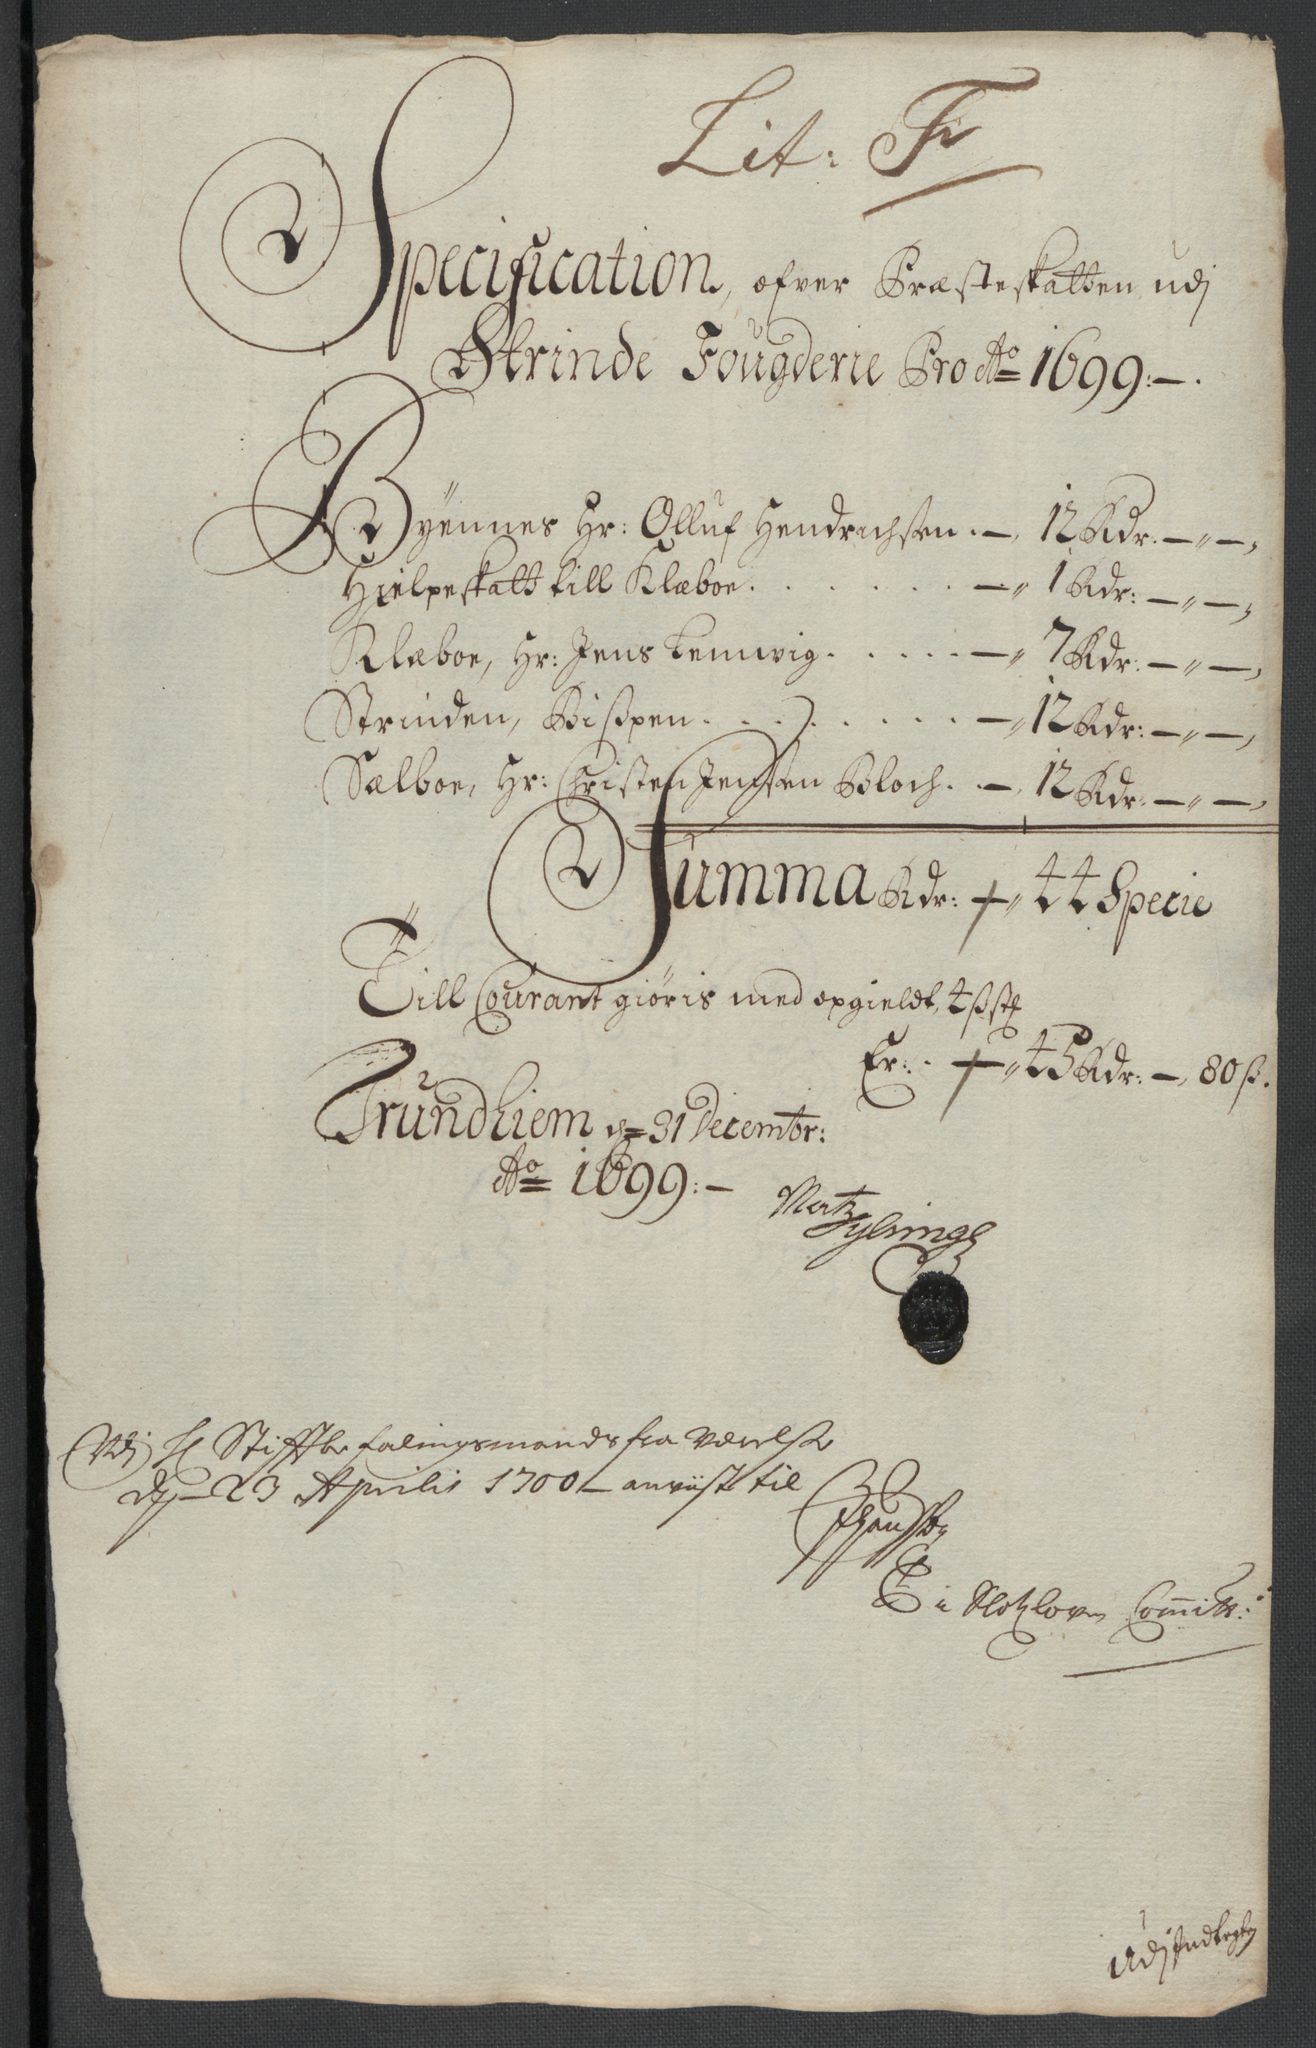 Lit: F
Specification, ofver Præsteskatten udj
Strinde Fougderie Pro Ao 1699:-.
Byennes Hr: Olluf Hendrichsen .-. 12 Rdr. -„-,
Hielpeskatt till Klæboe. . . . . . . -„ 1 Rdr: -„-,
Klæboe, Hr: Jens Lemwig. . . . . -„ 7 Rdr: -„-,
Strinden, Bißpen. . . . . . . . -„ 12 Rdr: -„-,
Sælboe, Hr: Christen Jensen Bloch. .-. 12 Rdr: -„-,
Summa Rdr: -„ 44 Specie
Till Courant giøris med opgieldt, 4 ß st
Er: . -„ 45 Rdr: -, 80 ß.
Trundhiem d= 31 Decembr:
Ao 1699:-
Matz
Udj H Stiftbefalingsmands fra Værelse
dj- 23 Aprilis 1700 - anviist til
E a Slotzloven Committ:
Udj Indtegten